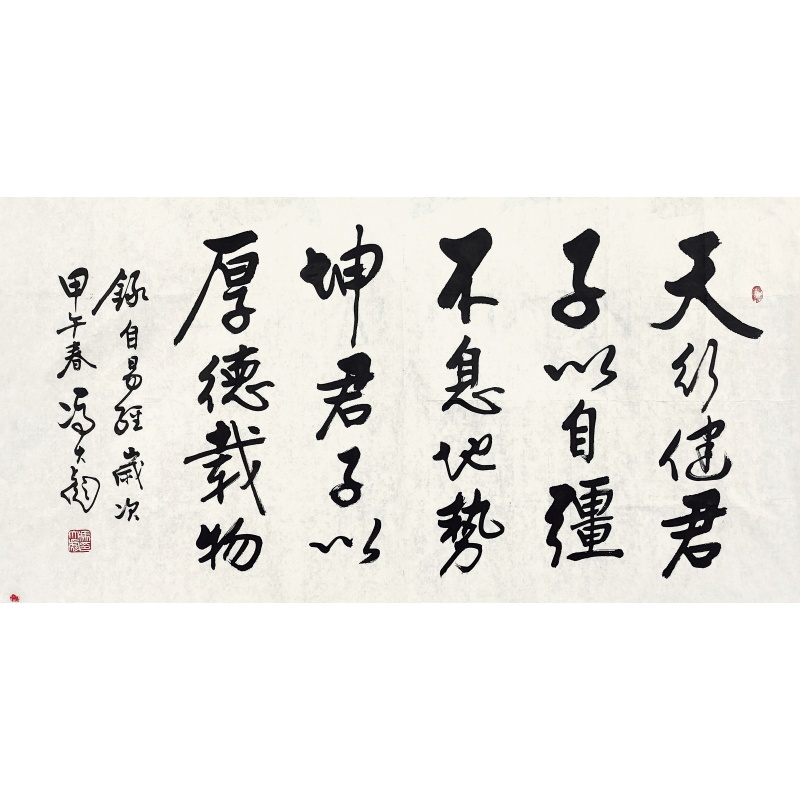 天行健君
子以自彊
不息地勢
坤君子以
厚德載物
錄自易經歲次
甲午春馮大